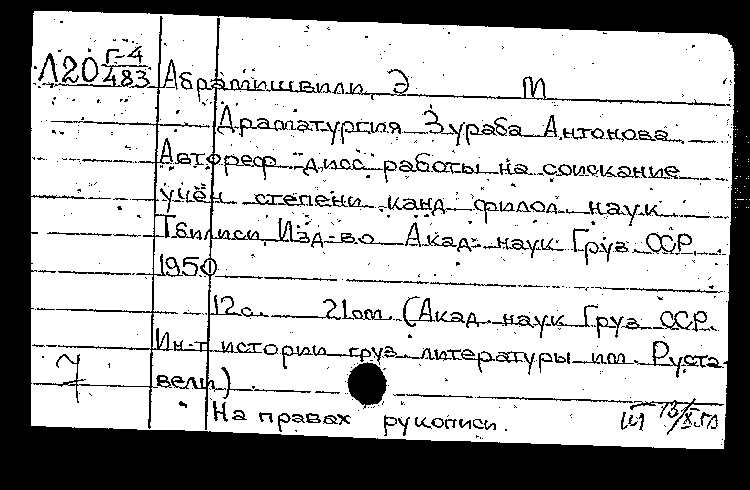 Л20 Г-4/483 Абрамишвили, Э М
Драматургия Зураба Антонова
Автореф дисс работы на соискание
учён степени канд филол. наук
Тбилиси, Изд-во Акад наук Груз ССР
1950
12с. 21см. (Акад наук Груз ССР.
Ин-т истории груз литературы им. Руста-
вели)
На правах рукописи.